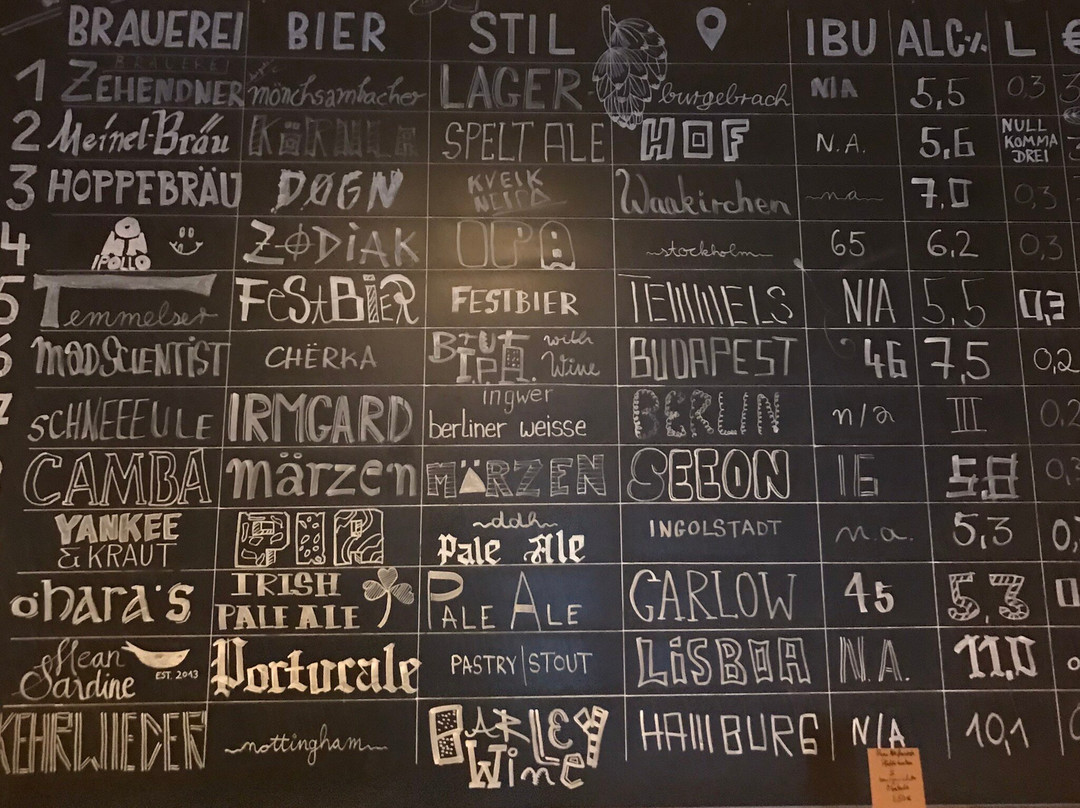 BRAUEREI BIER STIL IBU ALC% L €
1 ZEHENDNER mönchsambacher LAGER burgebrach N/A 5,5 0,3
BRAUEREI
2 Meinel-Bräu SPELT ALE HOF N.A. 5,6 NULL KOMMA DREI
3 HOPPEBRÄU DØGN KVEIK NEIPA Waakirchen na 7.0 0,3
4 APOLLO ZØDiAK stockholm 65 6,2 0,3
5 Temmelser FeStBIER FESTBIER TEMMELS N/A 5,5 0,3
6 MAD SCIENTIST CHËRKA BRUT I.P.A. with Wine BUDAPEST 46 7,5 0,2
7 SCHNEEEULE IRMGARD ingwer berliner weisse BERLIN n/a III 0,2
CAMBA märzen MÄRZEN SEEON 16 5,8 0,3
YANKEE & KRAUT ddh Pale Ale INGOLSTADT n.a. 5,3 0,
o'hara's IRISH PALE ALE PALE ALE CARLOW 45 5,3
Mean Sardine EST. 2013 Portucale PASTRY|STOUT LiSBOA N.A. 11,0
KEHRWIEDER nottingham BARLEY Wine HAMBURG N/A 10,1